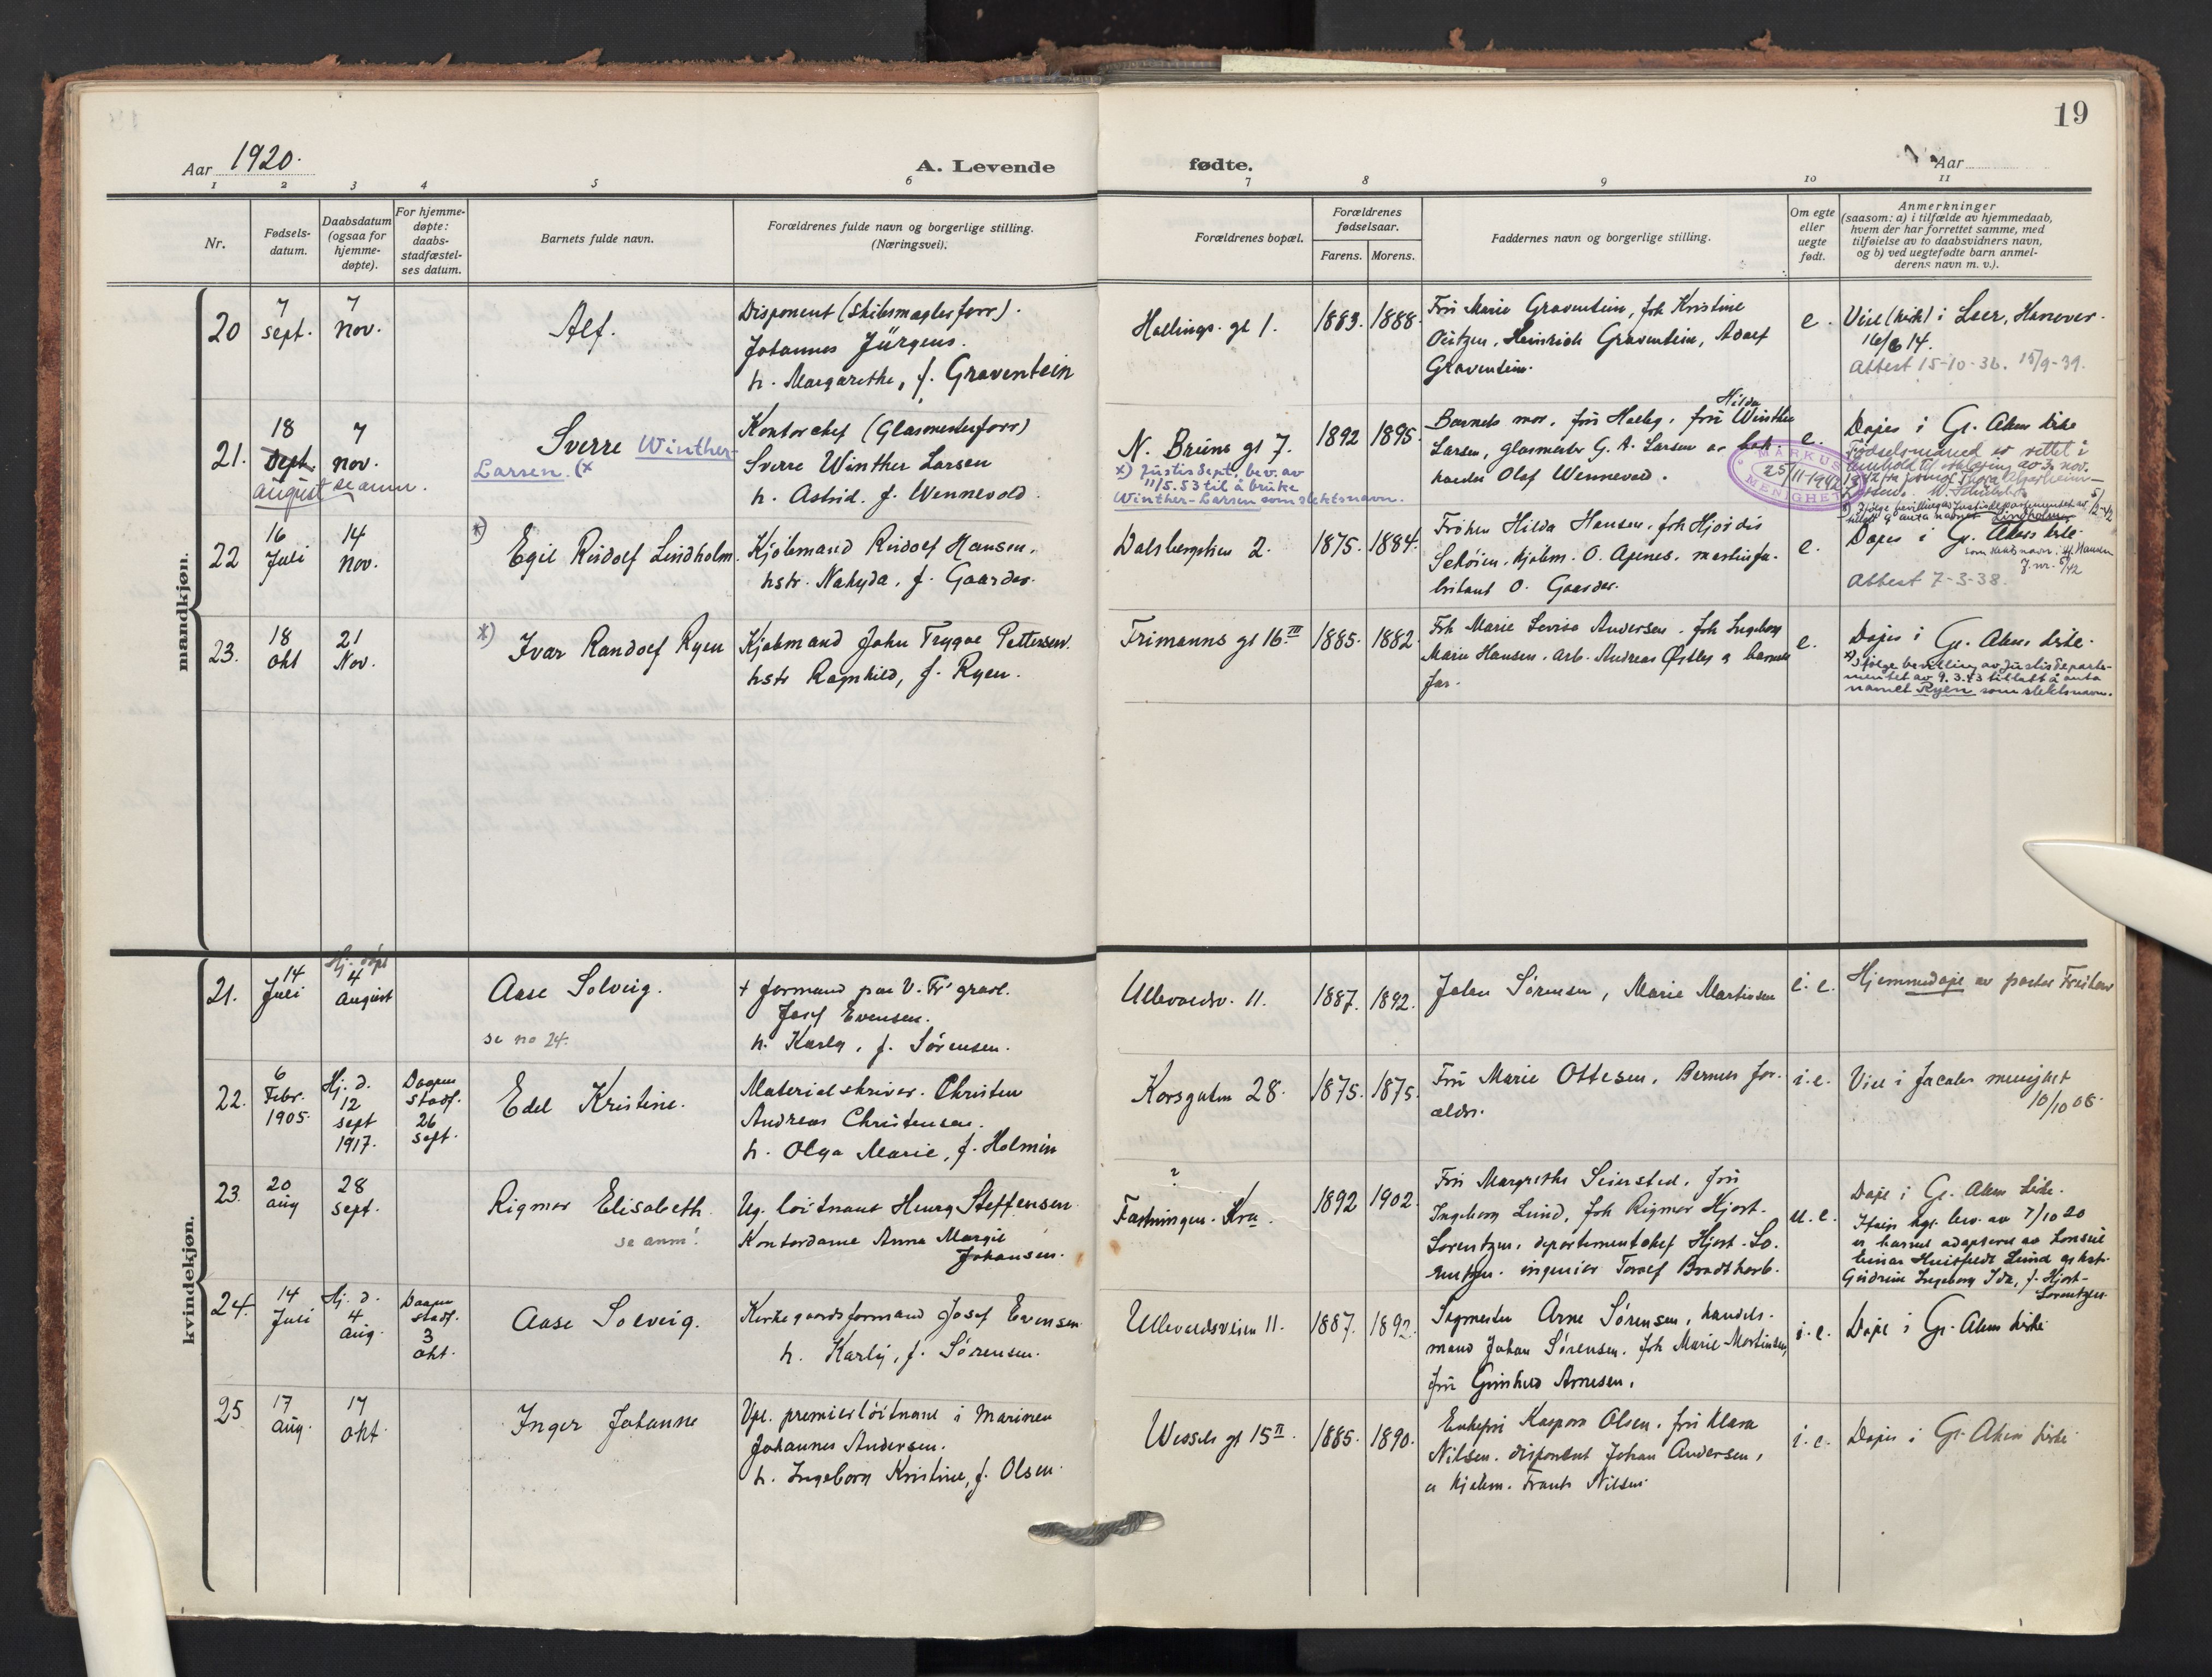 19
Aar 1920.
A. Levende
fødte.
Aar
1 2 3 4 5 6 7 8 9 10 11
Nr.
Fødsels-
datum.
Daabsdatum
(ogsaa for
hjemme-
døpte).
For hjemme-
døpte:
daabs-
stadfæstel-
ses datum.
Barnets fulde navn.
Forældrenes fulde navn og borgerlige stilling.
(Næringsvei).
Forældrenes bopæl.
Forældrenes
fødselsaar.
Farens. Morens.
Faddernes navn og borgerlige stilling.
Om egte
eller
uegte
født.
Anmerkninger
(saasom: a) i tilfælde av hjemmedaab,
hvem der har forrettet samme, med
tilføielse av to daabsvidners navn,
og b) ved uegtefødte barn anmel-
derens navn m. v.).
mandkjøn.
20
7
sept.
7
nov.
Alf.
Disponent (skibsmæglerforr).
Johannes Jürgens.
h. Margarethe, f. Graventein
Hallings. gt 1.
1883. 1888.
Fru Marie Graventein, frk Kristine
Heinrich Graventein, Adolf
Graventein.
e.
Viet (kirk) i Leer, Hanover.
16/6 14.
Attest 15-10-36. 15/9-39.
21.
18
Sept.
august
7
nov.
se anm.
Sverre Winther-
Larsen. (x
Kontorchef (Glasmesterforr)
Sverre Winther Larsen
h. Astrid. f. Wennevold.
N. Bruns gt 7.
x) Justisdept. bev. av
11/5.53 til å bruke
Winther-Larsen som slektsnavn.
1892 1895.
Hilda
Barnets mor, fru Holby, fru Winther
Larsen, glasmester G. A. Larsen
Olaf Wennevold.
e.
Døpt i Gl. Akers kirke
Fødselsmåned er rettet i
henhold til erklæring av 3. nov.
MARKUS
25/11-1942
MENIGHET
22
16
Juli
14
nov.
*)
Egil Rudolf Lindholm.
Kjøbmand Rudolf Hansen.
hstr. Nakyda, f. Gaarder.
Dalsbergstien 2.
1875. 1884.
Frøken Hilda Hansen, frk Hjørdis
Schøien, kjøbm. O. Agenes, maskinfa-
brikant O. Gaarder.
e.
Døpt i Gl. Akers kirke
Attest 7-3-38.
23.
18
okt
21
Nov.
*)
Ivar Randolf Ryen
Kjøbmand John Trygve Pettersen.
hstr Ragnhild, f. Ryen.
Frimanns gt 16 III
1885. 1882.
Frk Marie Lovisa Andersen. frk Ingeborg
Marie Hansen. arb. Andreas Østby og barnets
far.
e.
Døpt i Gl. Akers kirke.
*) Ifølge bevilling av Justisdeparte-
mentet av 9.3.43 tillatt å anta
navnet Ryen som slektsnavn.
kvindekjøn.
21.
14
Juli
Hj. døpt
4
august
Aase Solveig.
se no 24.
+ formand paa V. Fr. gravl.
Josef Evensen.
h. Karly, f. Sørensen.
Ullevoldsv. 11.
1887. 1892.
Johan Sørensen, Marie Martinsen
i. e.
Hjemmedøpt av pastor
22.
6
Febr.
1905.
Hj. d.
12
sept
1917.
Daapen
stadf.
26
sept.
Edel Kristine.
Materialskriver. Christen
Andreas Christensen.
h. Olga Marie, f. Holmin
Korsgaten 28.
1875. 1875.
Fru Marie Ottesen. Barnets for-
ældre.
i. e.
Viet i Jacobs menighet
10/10 08.
23.
20
aug
28
sept.
Rigmor Elisabeth.
se anm!
Ug. løitnant Henry Steffensen.
Kontordame Anna Margit
Johansen.
?
Fæstningen. Kra.
1892 1902.
Fru Margrethe Seiersted, fru
Ingeborg Lund, frk Rigmor Hjort-
Lorentzen. departementchef Hjort-Lo-
rentzen. ingeniør Toralf Bradthorb.
u. e.
Døpt i Gl. Akers kirke.
Ifølge kgl. bev. av 7/10 20
er barnet adopteret av konsul
Einar Huitfeldt Lund og hstr.
Gudrun Ingeborg Ida, f. Hjort-
Lorentzen
24.
14
Juli
Hj. d.
4
aug.
Daapen
stadf.
3
okt.
Aase Solveig.
Kirkegaardsformand Josef Evensen
h. Karly, f. Sørensen.
Ullevoldsveien 11.
1887. 1892.
Sagmester Arne Sørensen, handels-
mand Johan Sørensen. frk Marie Martinsen,
fru Gunhild Arnesen.
i. e.
Døpt i Gl. Akers kirke
25
17
aug.
17
okt.
Inger Johanne
Vpl. premierløitnant i marinen
Johannes Andersen.
h. Ingeborg Kristine, f. Olsen.
Wessels gt 15 II.
1885. 1890.
Enkefru Kaspara Olsen. fru Klara
Nilsen. disponent Johan Andersen,
og kjøbm. Frants Nilsen.
i. e.
Døpt i Gl. Akers kirke